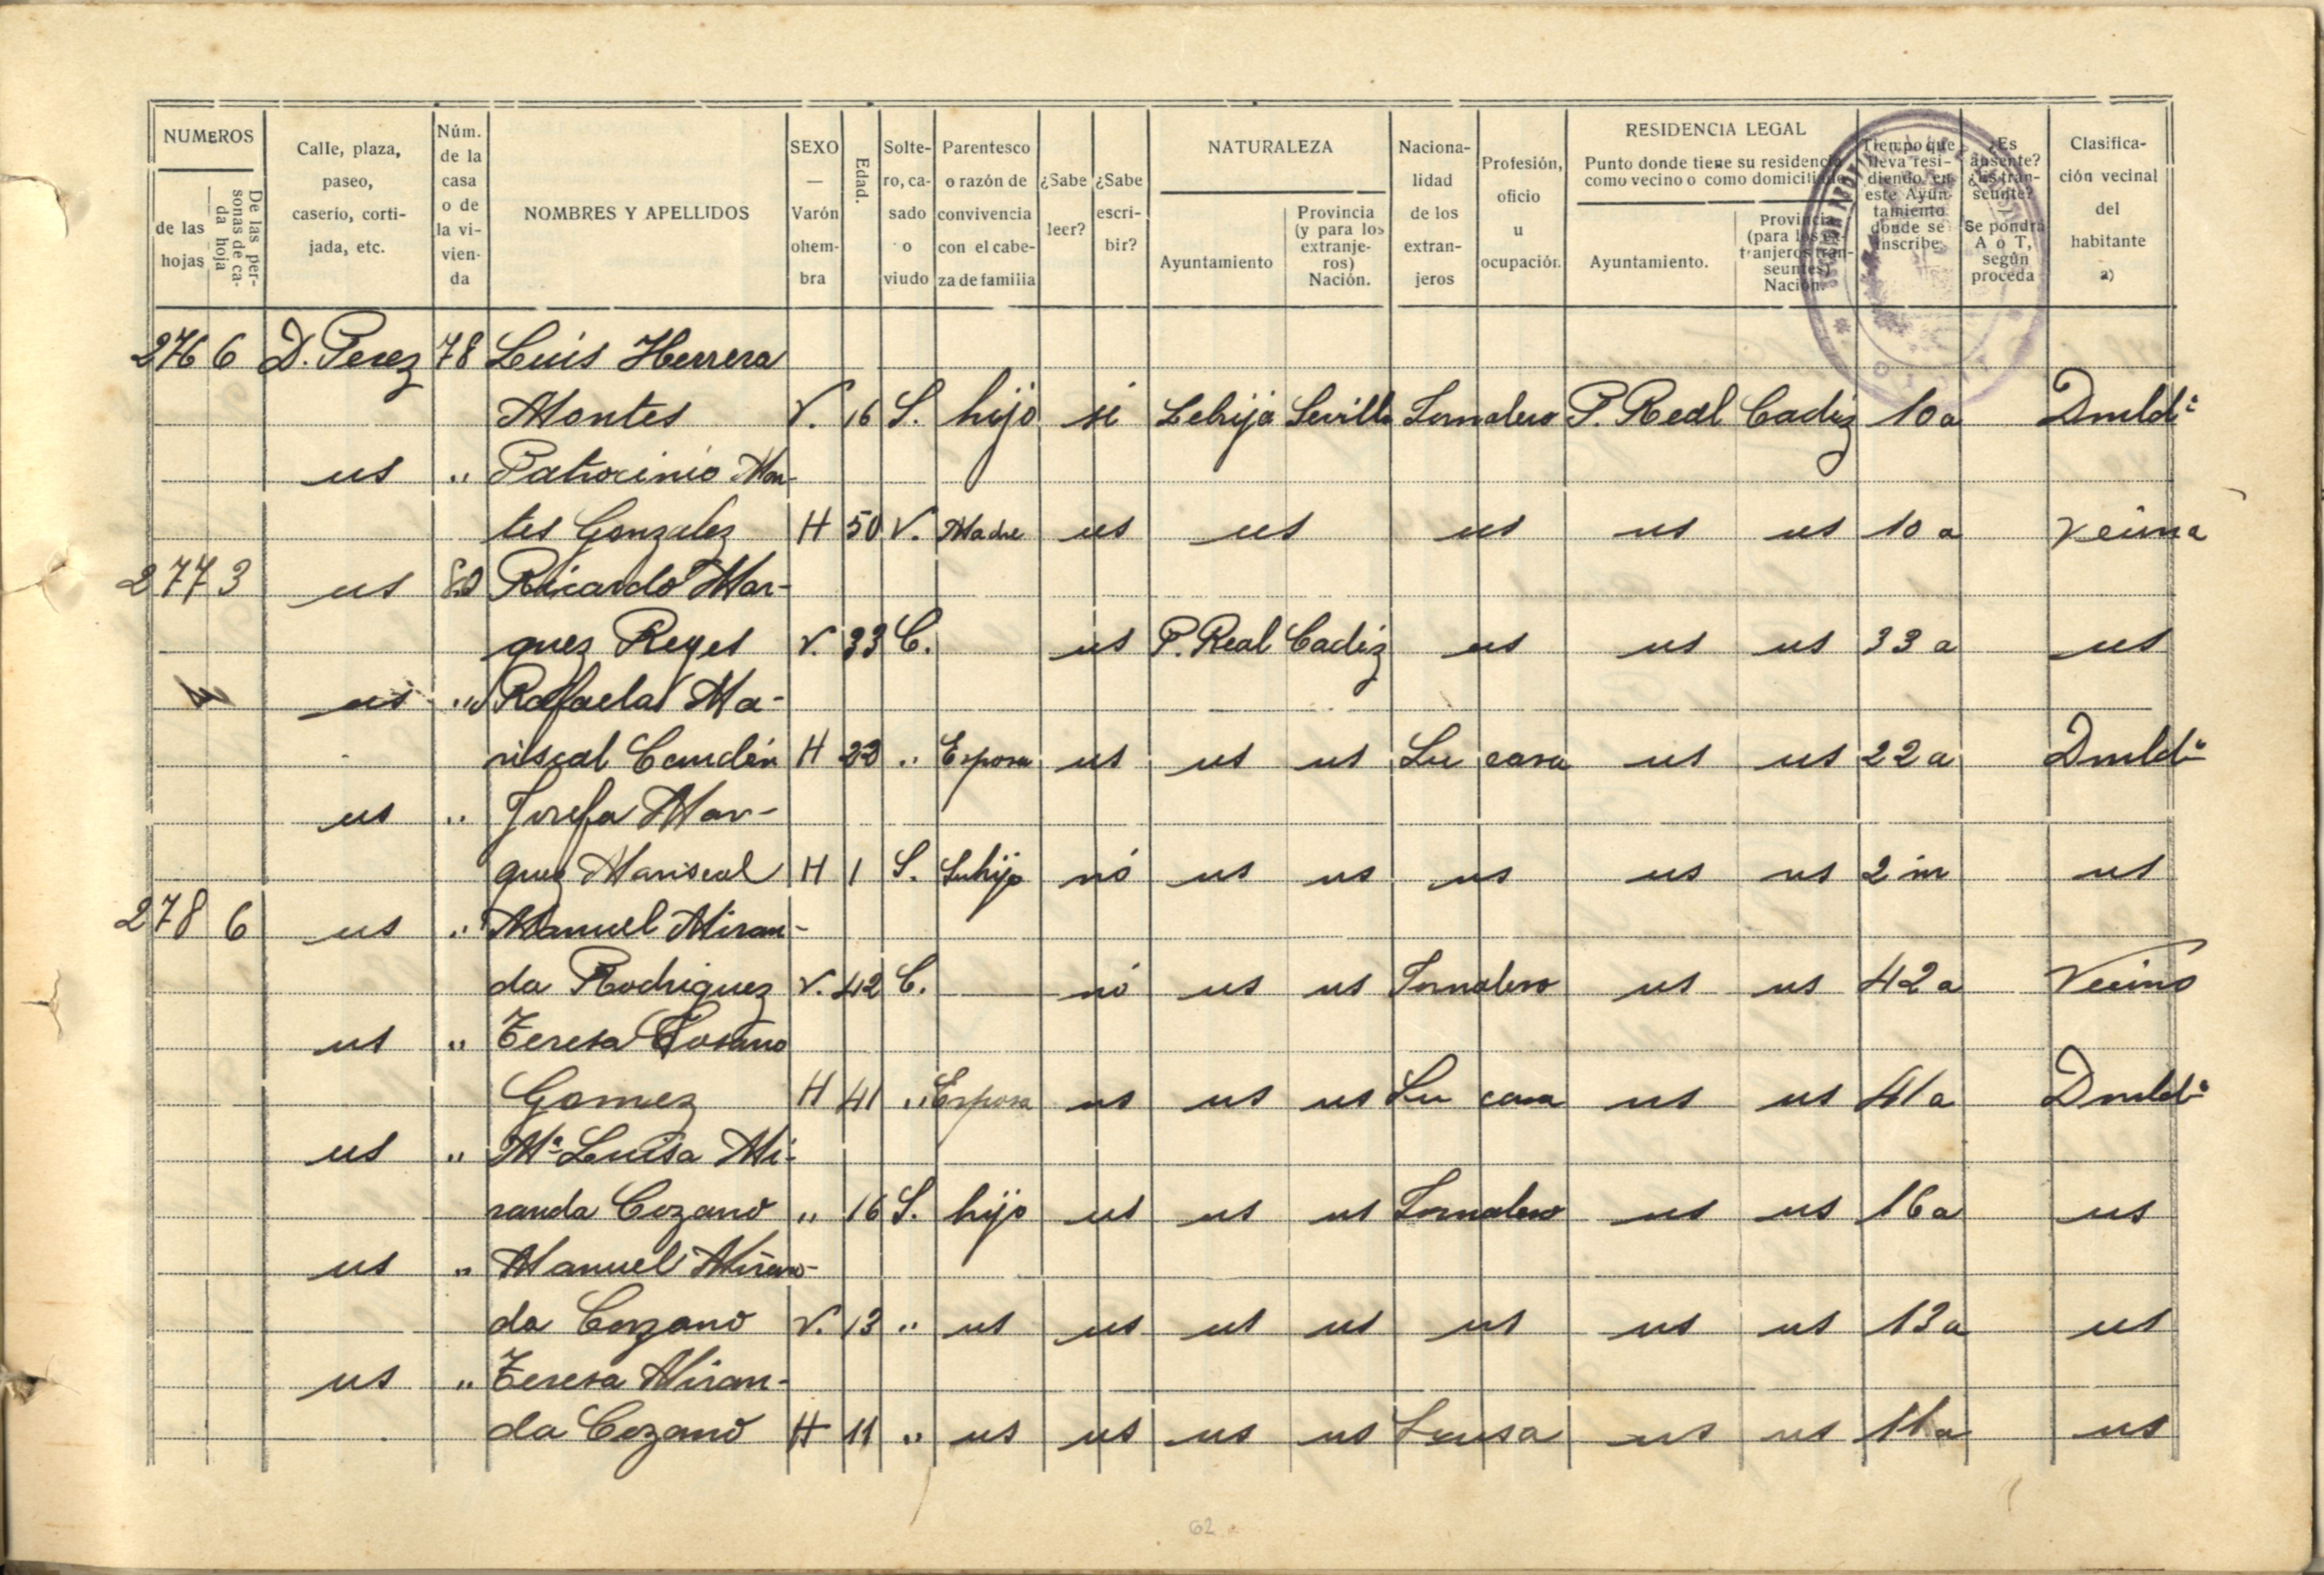 NUMEROS
de las hojas
De las personas de cada hoja
Calle, plaza, paseo, caserío, cortijada, etc.
Núm. de la casa o de la vivienda
NOMBRES Y APELLIDOS
SEXO — Varón o hembra
Edad.
Soltero, casado o viudo
Parentesco o razón de convivencia con el cabeza de familia
¿Sabe leer?
¿Sabe escribir?
NATURALEZA
Ayuntamiento
Provincia (y para los extranjeros) Nación.
Nacionalidad de los extranjeros
Profesión, oficio u ocupación.
RESIDENCIA LEGAL
Punto donde tiene su residencia como vecino o como domiciliado
Ayuntamiento.
Provincia (para los extranjeros transeuntes) Nación.
Tiempo que lleva residiendo en este Ayuntamiento donde se inscribe
¿Es ausente? ¿Es transeunte? Se pondrá A o T, según proceda
Clasificación vecinal del habitante a)
276 6 D. Perez 78 Luis Herrera
Montes V. 16 S. hijo si Lebrija Sevilla Jornalero P. Real Cadiz 10 a Dmldº
us " Patrocinio Mon-
tes Gonzalez H 50 V. Madre us us us us us 10 a Vecina
277 3 us 80 Ricardo Mar-
quez Reyes V. 33 C. us P. Real Cadiz us us us 33 a us
us " Rafaela Ma-
riscal Candón H 22 " Esposa us us us Su casa us us 22 a Dmldª
us " Josefa Mar-
quez Mariscal H 1 S. Su hijo nó us us us us us 2 m us
278 6 us " Manuel Miran-
da Rodriguez V. 42 C. — nó us us Jornalero us us 42 a Vecino
us " Teresa Cosano
Gomez H 41 " Esposa us us us Su casa us us 41 a Dmldª
us " Mª Luisa Mi-
randa Cozano " 16 S. hijo us us us Jornalero us us 16 a us
us " Manuel Miran-
da Cozano V. 13 " us us us us us us us 13 a us
us " Teresa Miran-
da Cozano H 11 " us us us us us us 11 a us
62